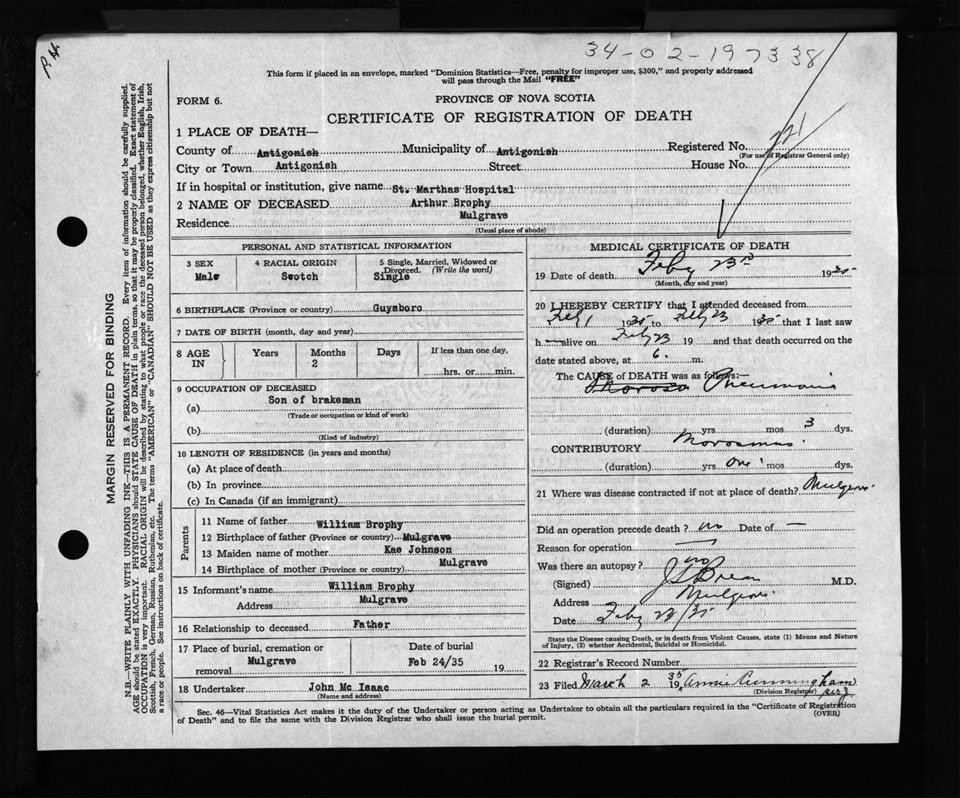 34-02-197338
PH
This form if placed in an envelope, marked "Dominion Statistics—Free, penalty for improper use, $300," and properly addressed
will pass through the Mail "FREE"
FORM 6.
PROVINCE OF NOVA SCOTIA
CERTIFICATE OF REGISTRATION OF DEATH
1 PLACE OF DEATH—
County of Antigonish Municipality of Antigonish Registered No. 221
(For use of Registrar General only)
City or Town Antigonish Street House No.
If in hospital or institution, give name St. Marthas Hospital
2 NAME OF DECEASED Arthur Brophy
Residence Mulgrave
(Usual place of abode)
MARGIN RESERVED FOR BINDING
N.B.—WRITE PLAINLY WITH UNFADING INK—THIS IS A PERMANENT RECORD. Every item of information should be carefully supplied.
AGE should be stated EXACTLY. PHYSICIANS should STATE CAUSE OF DEATH in plain terms, so that it may be properly classified. Exact statement of
OCCUPATION is very important. RACIAL ORIGIN will be described by stating to what people or race the deceased person belonged, whether English, Irish,
Scottish, French, German, Russian, Ruthenian, etc. The terms "AMERICAN" or "CANADIAN" SHOULD NOT BE USED as they express citizenship but not
a race or people. See instructions on back of certificate.
PERSONAL AND STATISTICAL INFORMATION
3 SEX
Male
4 RACIAL ORIGIN
Scotch
5 Single, Married, Widowed or
Divorced. (Write the word)
Single
6 BIRTHPLACE (Province or country) Guysboro
7 DATE OF BIRTH (month, day and year)
8 AGE IN
Years
Months
2
Days
If less than one day,
hrs. or min.
9 OCCUPATION OF DECEASED
(a) Son of brakeman
(Trade or occupation or kind of work)
(b)
(Kind of industry)
10 LENGTH OF RESIDENCE (in years and months)
(a) At place of death
(b) In province
(c) In Canada (if an immigrant)
Parents
11 Name of father William Brophy
12 Birthplace of father (Province or country) Mulgrave
13 Maiden name of mother Kae Johnson
14 Birthplace of mother (Province or country) Mulgrave
15 Informant's name William Brophy
Address Mulgrave
16 Relationship to deceased Father
17 Place of burial, cremation or
removal Mulgrave
Date of burial
Feb 24/35 19
18 Undertaker John Mc Isaac
(Name and address)
MEDICAL CERTIFICATE OF DEATH
19 Date of death Feby 23rd 1935
(Month, day and year)
20 I HEREBY CERTIFY that I attended deceased from
Feby 1 1935 to Feby 23 1935 that I last saw
h alive on Feby 23 19 and that death occurred on the
date stated above, at 6. m.
The CAUSE of DEATH was as follows:—
Pneumonia
(duration) yrs mos 3 dys.
CONTRIBUTORY Morosmus.
(duration) yrs One mos dys.
21 Where was disease contracted if not at place of death? Mulgrave.
Did an operation precede death? no Date of —
Reason for operation —
Was there an autopsy? no
(Signed) M.D.
Address Mulgrave
Date Feby 23/35
State the Disease causing Death, or in death from Violent Causes, state (1) Means and Nature
of Injury, (2) whether Accidental, Suicidal or Homicidal.
22 Registrar's Record Number
23 Filed March 2 1935 Annie Cunningham
(Division Registrar)
Sec. 46—Vital Statistics Act makes it the duty of the Undertaker or person acting as Undertaker to obtain all the particulars required in the "Certificate of Registration
of Death" and to file the same with the Division Registrar who shall issue the burial permit. (OVER)